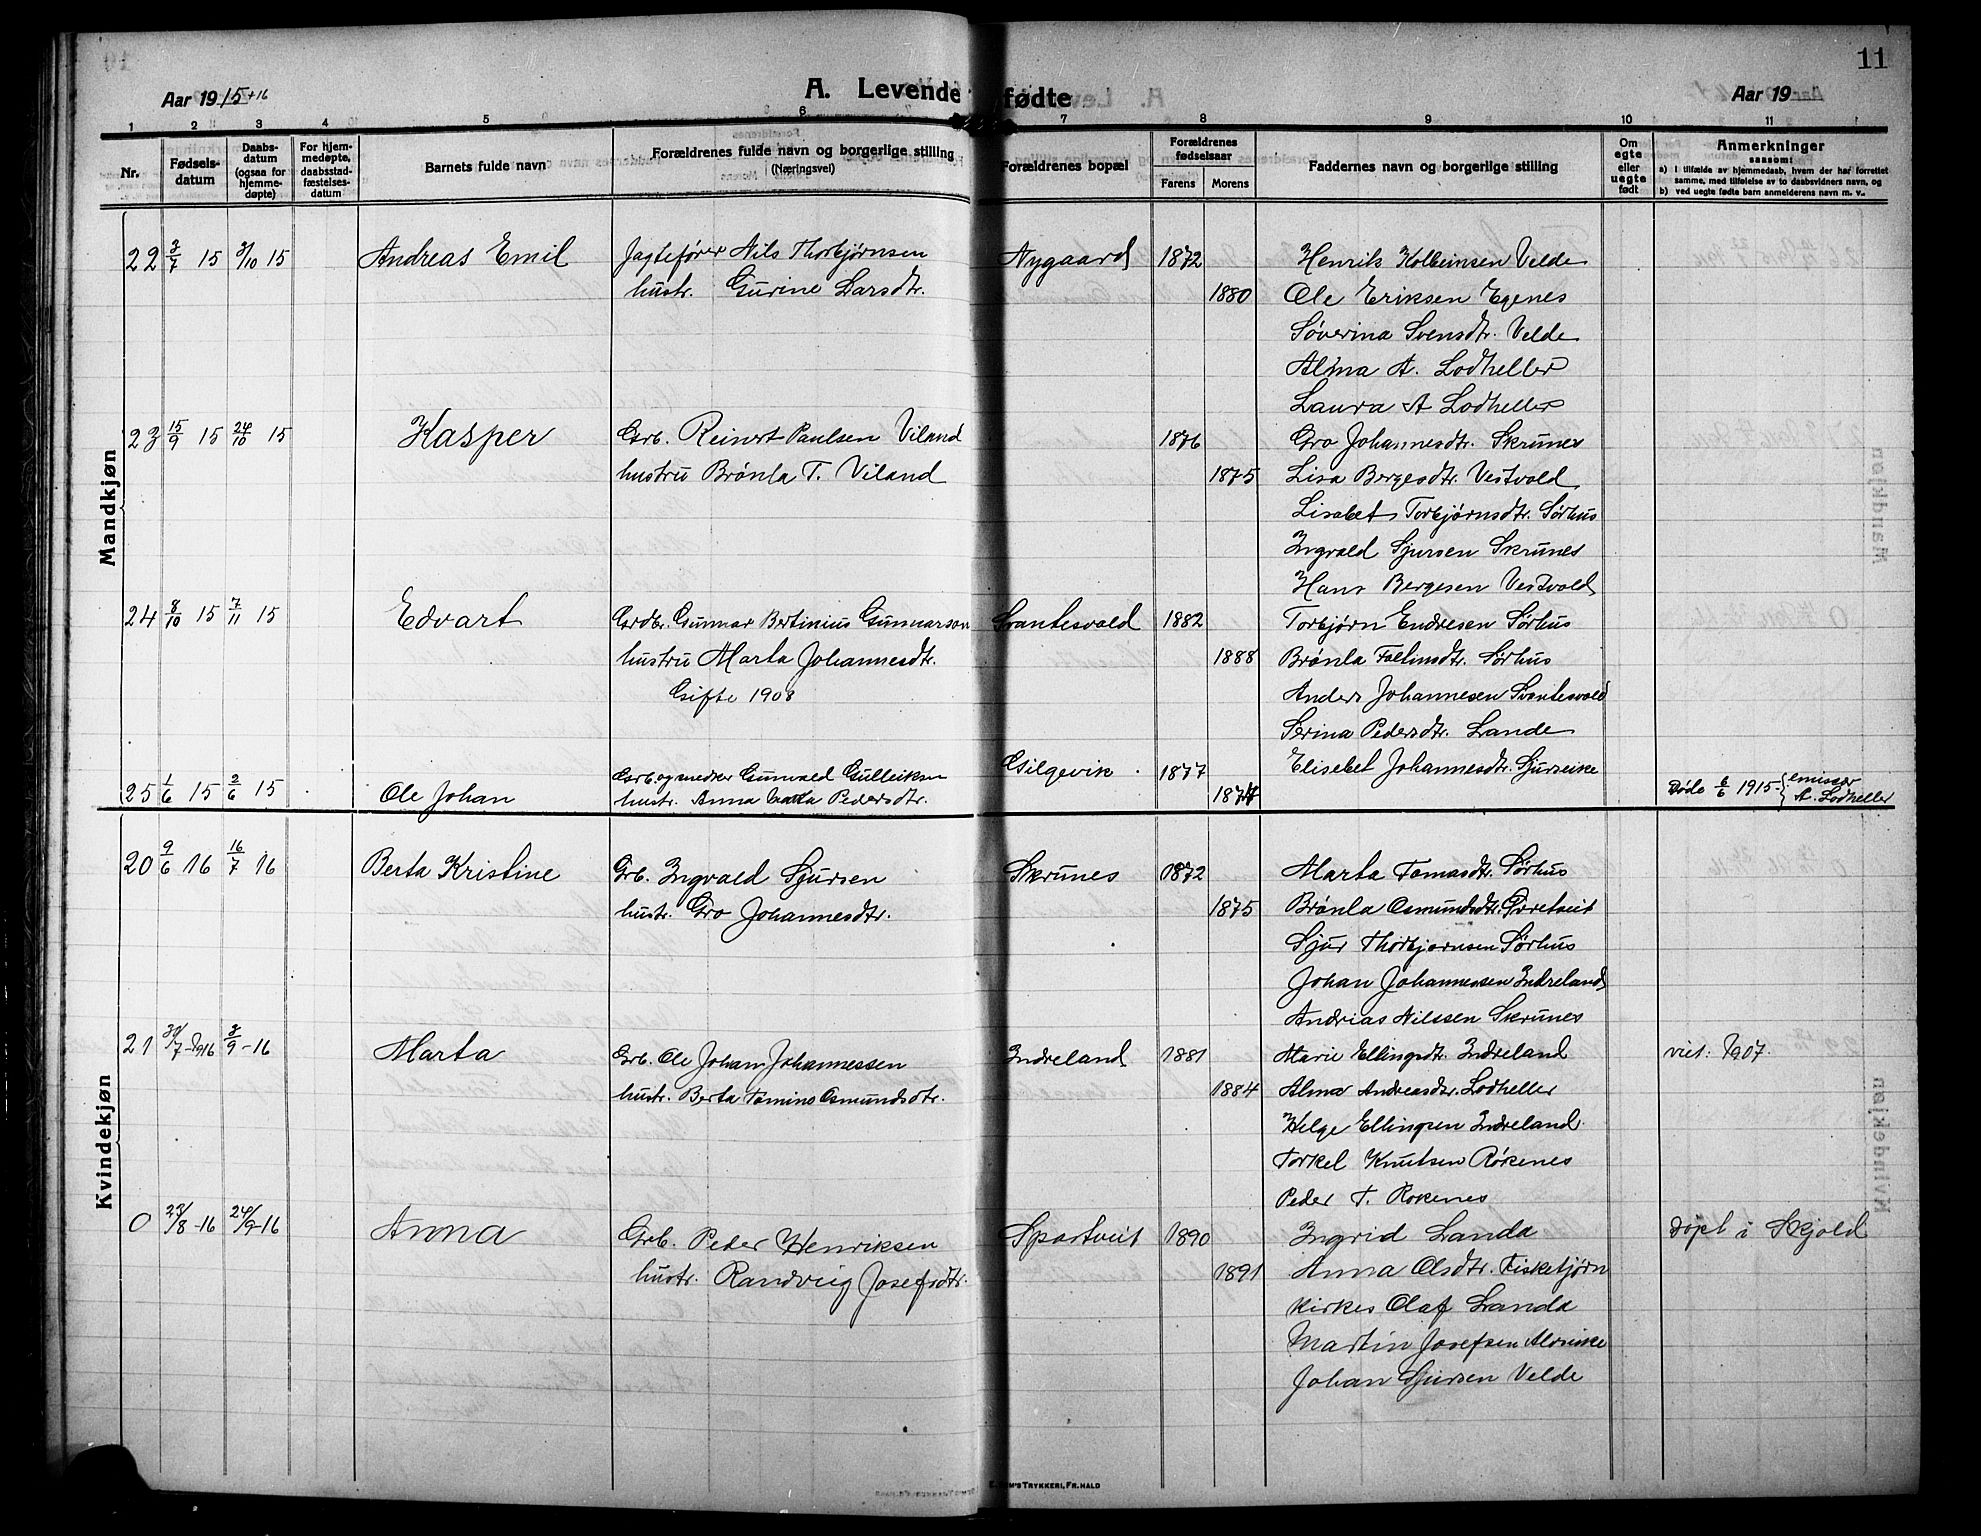 11
Aar 1915+16
A. Levende fødte
Aar 19
1 2 3 4 5 6 7 8 9 10 11
Nr.
Fødselsdatum
Daabsdatum (ogsaa for hjemmedøpte)
For hjemmedøpte, daabsstadfæstelsesdatum
Barnets fulde navn
Forældrenes fulde navn og borgerlige stilling (Næringsvei)
Forældrenes bopæl
Forældrenes fødselsaar
Farens Morens
Faddernes navn og borgerlige stilling
Om egte eller uegte født
Anmerkninger
saasom:
a) I tilfælde av hjemmedaab, hvem der har forrettet samme, med tilføielse av to daabsvidners navn, og
b) ved uegte fødte barn anmelderens navn m. v.
Mandkjøn
22 3/7 15 3/10 15 Andreas Emil Jagtefører Nils Thorbjørnsen Nygaard 1872 Henrik Kolbeinsen Velde
hustr. Gurine Larsdtr. 1880 Ole Eriksen Egenes
Søverina Svensdtr. Velde
Alma A. Lodheller
Laura A Lodheller
23 15/9 15 24/10 15 Kasper Grb. Reinert Paulsen Viland 1876 Gro Johannesdtr. Skrunes
hustru Brønla T. Viland 1875 Lisa Bergesdtr. Vestvold
Lisabet Torbjørnsdtr. Sørhus
Ingvald Sjursen Skrunes
Hans Bergesen Vestvold
24 8/10 15 7/11 15 Edvart Grdbr. Gunnar Bertinius Gunnarson Svantesvold 1882 Torbjørn Endresen Sørhus
hustru Marta Johannesdtr. 1888 Brønla Sørhus
Gifte 1908 Anders Johannesen Svantesvold
Serina Pedersdtr. Lande
Elisebet Johannesdtr.
25 1/6 15 2/6 15 Ole Johan Grb. og smed Gunvald Gulleiksen Gilgevik 1877
hustr. Anna Pedersdtr. 1874 Døde 6/6 1915 - { emissær A. Lodheller
Kvindekjøn
20 9/6 16 16/7 16 Berta Kristine Grb. Ingvald Sjursen Skrunes 1872 Marta Tomasdtr. Sørhus
hustr. Gro Johannesdtr. 1875 Brønla Osmundsdtr.
Sjur Thorbjørnsen Sørhus
Johan Johannessen Indreland
Andrias Nilssen Skrunes
21 30/7 - 1916 3/9 - 16 Marta Grb. Ole Johan Johannessen Indreland 1881 Marie Ellingsdtr. Indreland viet: 1907.
hustr. Berta Tomine Osmundsdtr. 1884 Alma Andreasdtr. Lodheller
Helge Ellingsen Indreland
Torkel Knutsen Røkenes
Peder T. Rokenes
0 23/8 - 16 24/9 - 16 Anna Grb. Peder Henriksen Spartveit 1890 Ingrid Landa Døpt i Skjold
hustr. Randveig Josefsdtr. 1891 Anna Olsdtr. Fisketjørn
Kirkes Olaf Landa
Martin Josefsen
Johan Sjursen Velde
TRYKKERI, FR. HALD